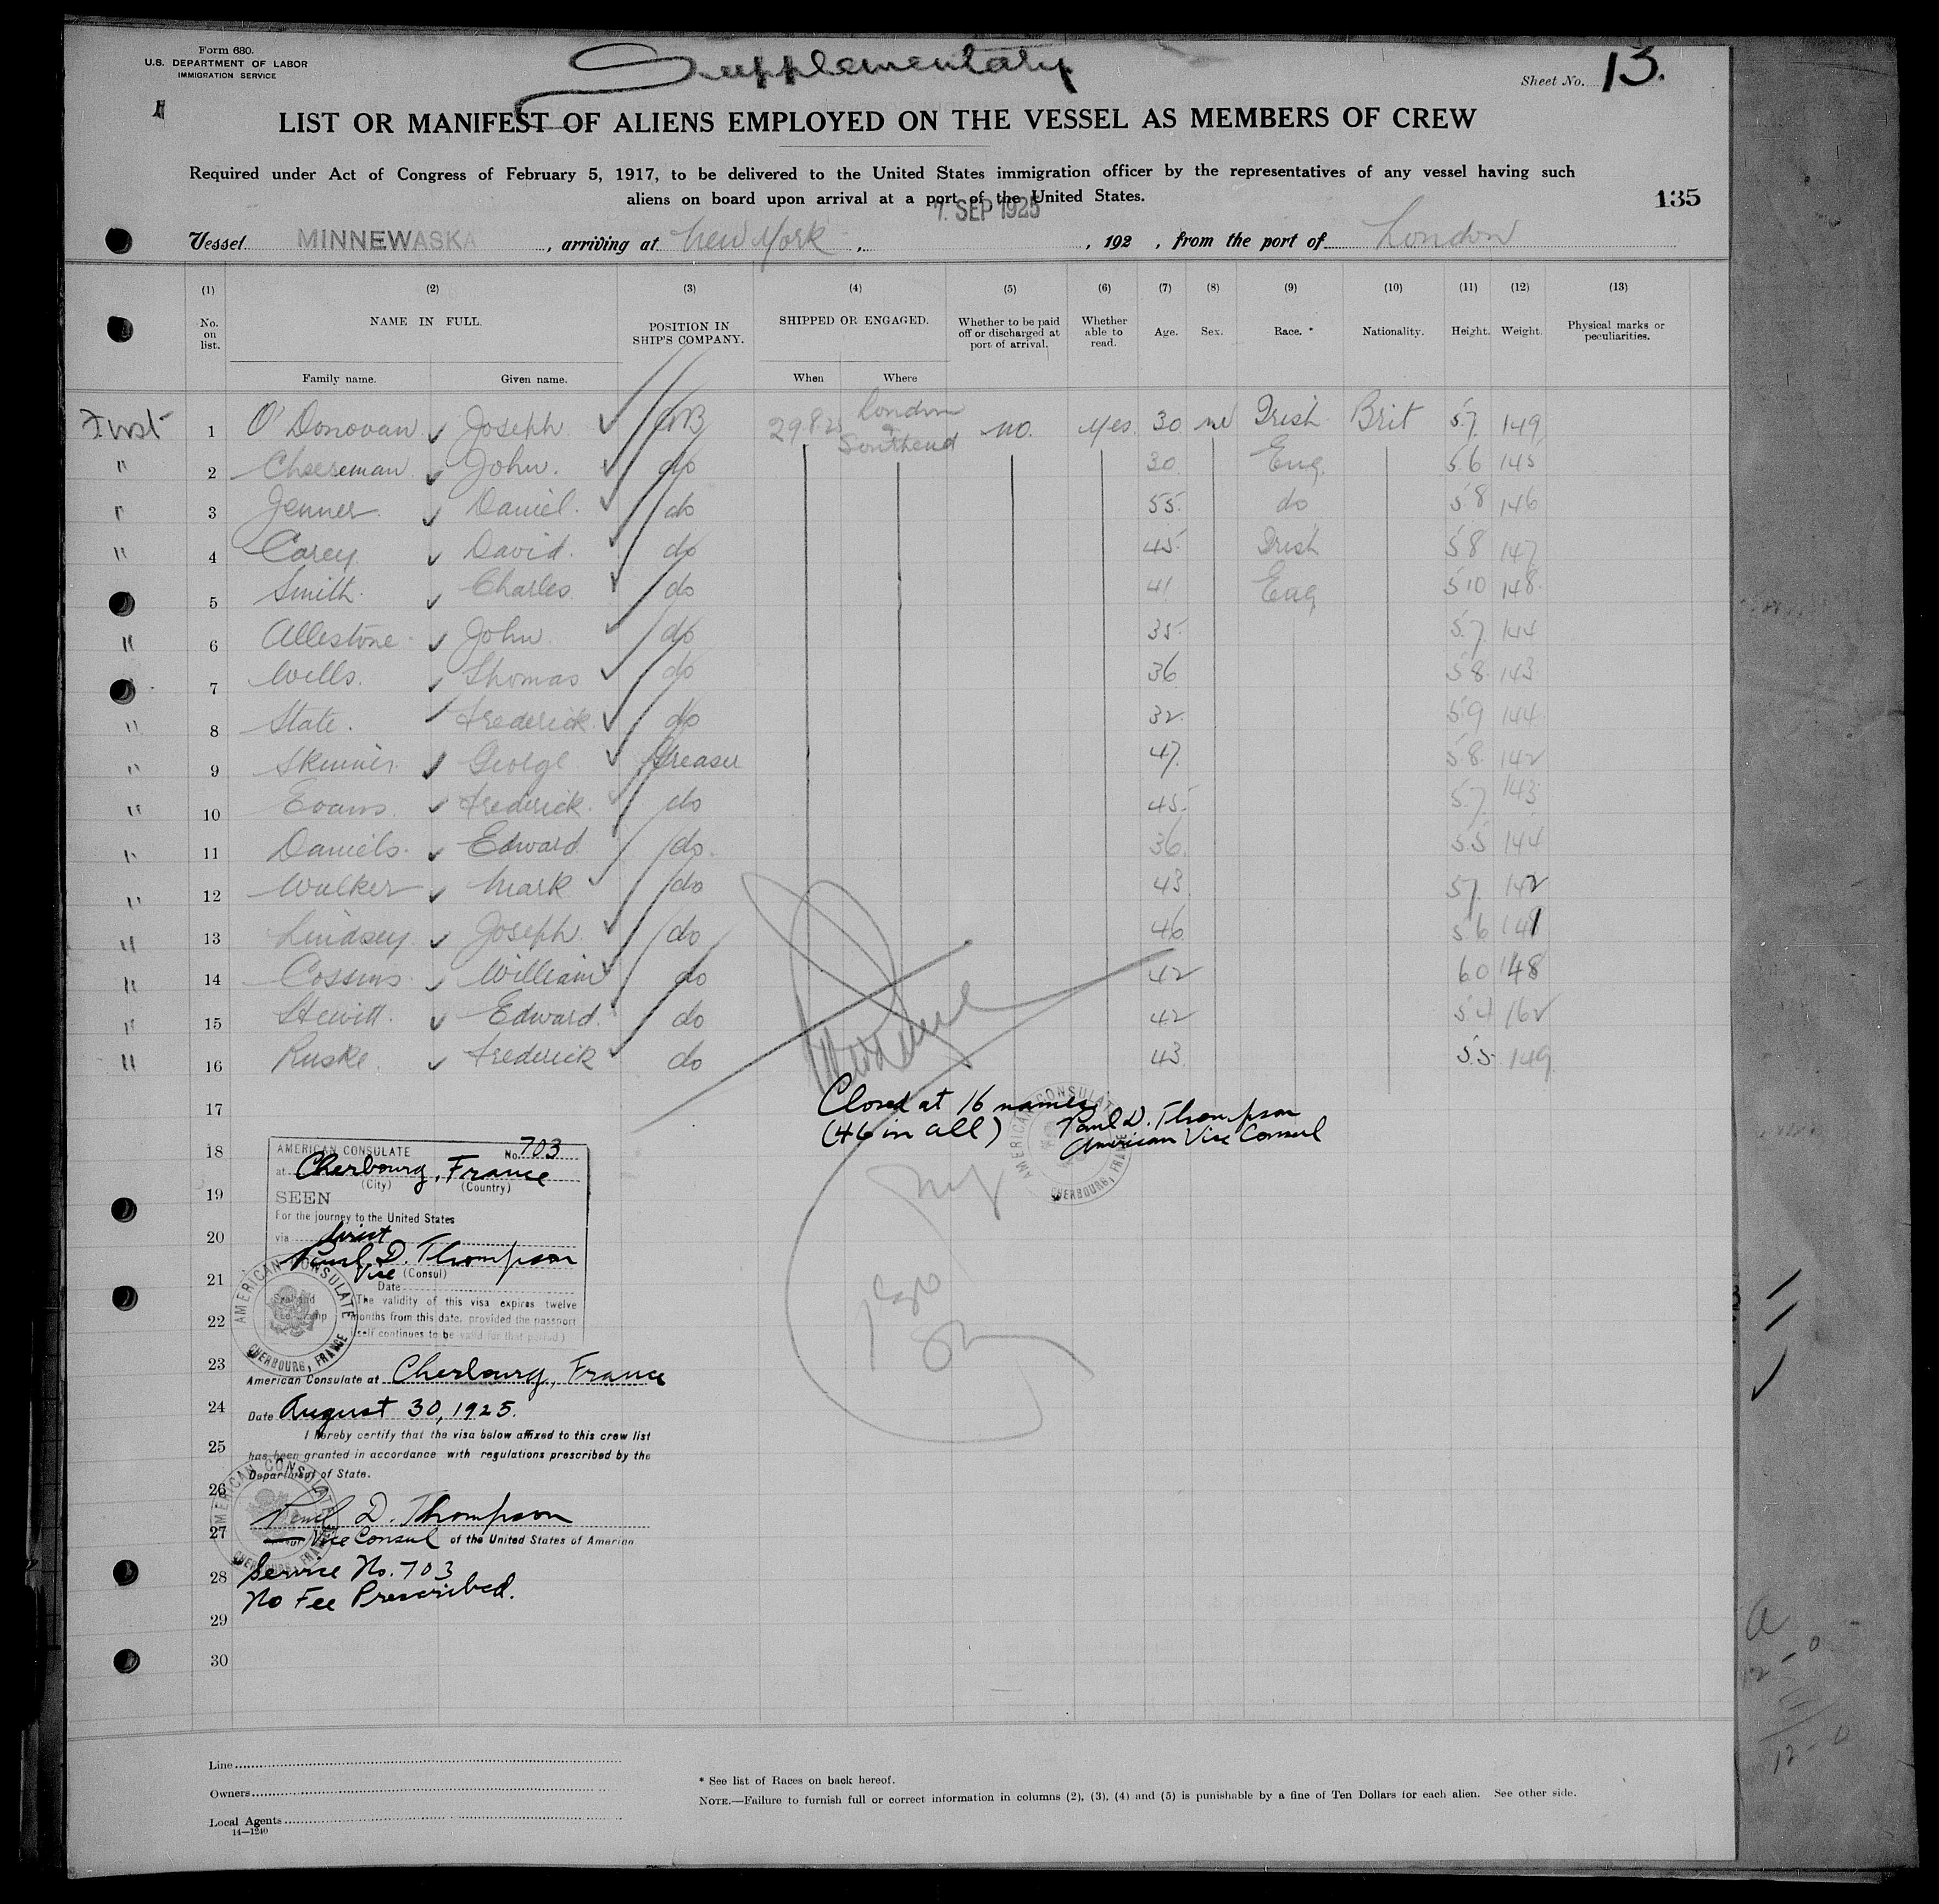 Form 680.
U.S. DEPARTMENT OF LABOR
IMMIGRATION SERVICE
Supplementary
Sheet No. 13.
LIST OR MANIFEST OF ALIENS EMPLOYED ON THE VESSEL AS MEMBERS OF CREW
Required under Act of Congress of February 5, 1917, to be delivered to the United States immigration officer by the representatives of any vessel having such
aliens on board upon arrival at a port of the United States.
135
7. SEP 1925
Vessel MINNEWASKA, arriving at New York, , 192 , from the port of London
(1) (2) (3) (4) (5) (6) (7) (8) (9) (10) (11) (12) (13)
No. on list. NAME IN FULL. POSITION IN SHIP'S COMPANY. SHIPPED OR ENGAGED. Whether to be paid off or discharged at port of arrival. Whether able to read. Age. Sex. Race. * Nationality. Height. Weight. Physical marks or peculiarities.
Family name. Given name. When Where
First 1 O'Donovan Joseph AB 29.8.25 London & Southend no. yes 30 m Irish Brit 5.7 149
" 2 Cheeseman John. do 30 Eng. 5.6 145
" 3 Jenner Daniel. do 55. do 5.8 146
" 4 Carey David. do 45. Irish 5.8 147
5 Smith Charles do 41 Eng 5.10 148.
" 6 Allestone John do 35. 5.7 144
7 Wells. Thomas do 36 5.8 143
" 8 State. Frederick do 32. 5.9 144
" 9 Skinner George Greaser 47. 5.8. 142
" 10 Evans. Frederick. do 45. 5.7 143
" 11 Daniels. Edward do. 36. 5.5 144
" 12 Walker Mark do 43. 5.7. 142
" 13 Lindsey Joseph do 46 5.6 141
" 14 Cossins William do 42 6.0 148
" 15 Stewitt. Edward. do 42 5.4 162
" 16 Ruske. Frederick do 43. 5.5. 149
17
Closed at 16 names
(46 in all)
Paul D. Thompson
American Vice Consul
AMERICAN CONSULATE
CHERBOURG, FRANCE
18
AMERICAN CONSULATE No. 703
at Cherbourg, France
(City) (Country)
19
SEEN
For the journey to the United States
20
via direct
Paul D. Thompson
Vice (Consul)
21
Date
(The validity of this visa expires twelve
22
months from this date, provided the passport
itself continues to be valid for that period.)
AMERICAN CONSULATE
CHERBOURG, FRANCE
23
American Consulate at Cherbourg, France
24
Date August 30, 1925.
I hereby certify that the visa below affixed to this crew list
25
has been granted in accordance with regulations prescribed by the
Department of State.
AMERICAN CONSULATE
CHERBOURG, FRANCE
26
Paul D. Thompson
27
Vice Consul of the United States of America
28
Service No. 703
No Fee Prescribed.
29
30
Line
Owners
Local Agents
14—1240
* See list of Races on back hereof.
NOTE.—Failure to furnish full or correct information in columns (2), (3), (4) and (5) is punishable by a fine of Ten Dollars for each alien. See other side.